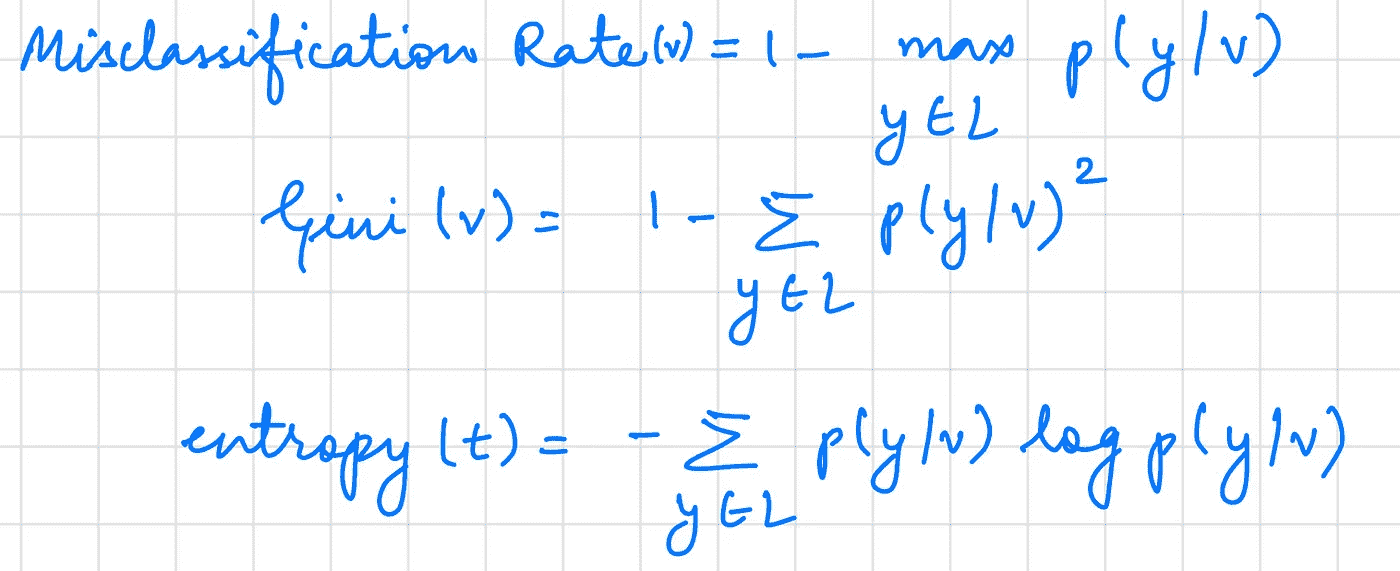 Misclassification Rate(v) = 1 - max p(y/v)
y ∈ L
Gini (v) = 1 - ∑ p(y/v)²
y ∈ L
entropy (t) = - ∑ p(y/v) log p(y/v)
y ∈ L